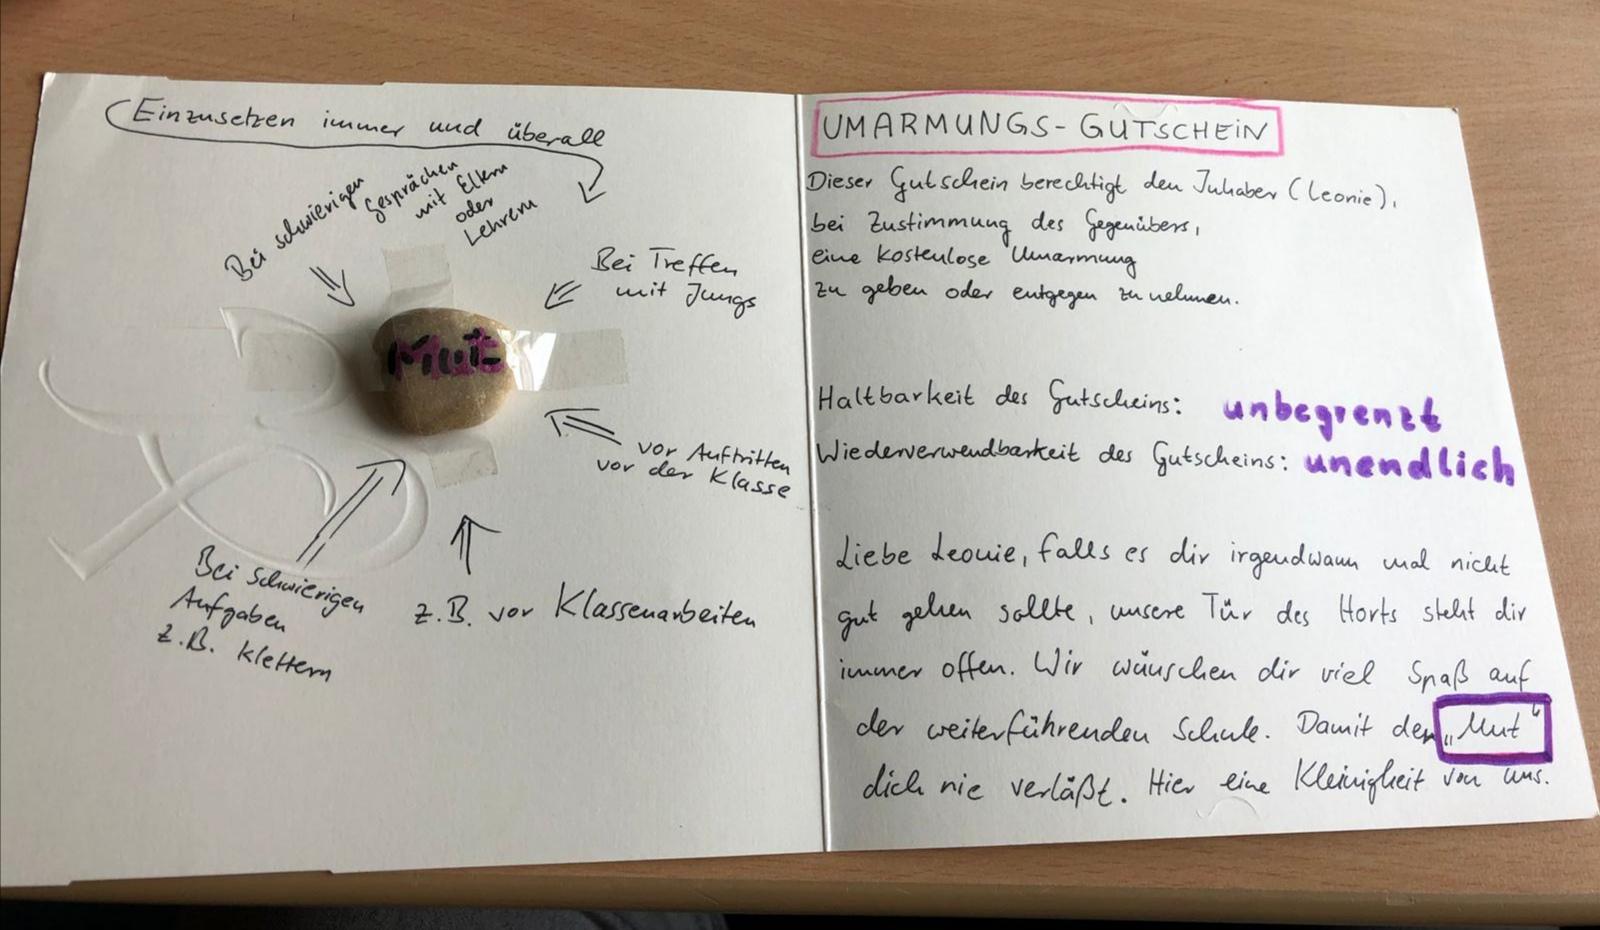 Einzusetzen immer und überall
Bei schwierigen
Gesprächen
mit Eltern
oder
Lehrern
Bei Treffen
mit Jungs
Mut
vor Auftritten
vor der Klasse
Bei schwierigen
Aufgaben
z.B. Klettern
z.B. vor Klassenarbeiten
UMARMUNGS-GUTSCHEIN
Dieser Gutschein berechtigt den Inhaber (Leonie),
bei Zustimmung des Gegenübers,
eine kostenlose Umarmung
zu geben oder entgegen zu nehmen.
Haltbarkeit des Gutscheins: unbegrenzt
Wiederverwendbarkeit des Gutscheins: unendlich
Liebe Leonie, falls es dir irgendwann mal nicht
gut gehen sollte, unsere Tür des Horts steht dir
immer offen. Wir wünschen dir viel Spaß auf
der weiterführenden Schule. Damit der „Mut“
dich nie verläßt. Hier eine Kleinigkeit von uns.